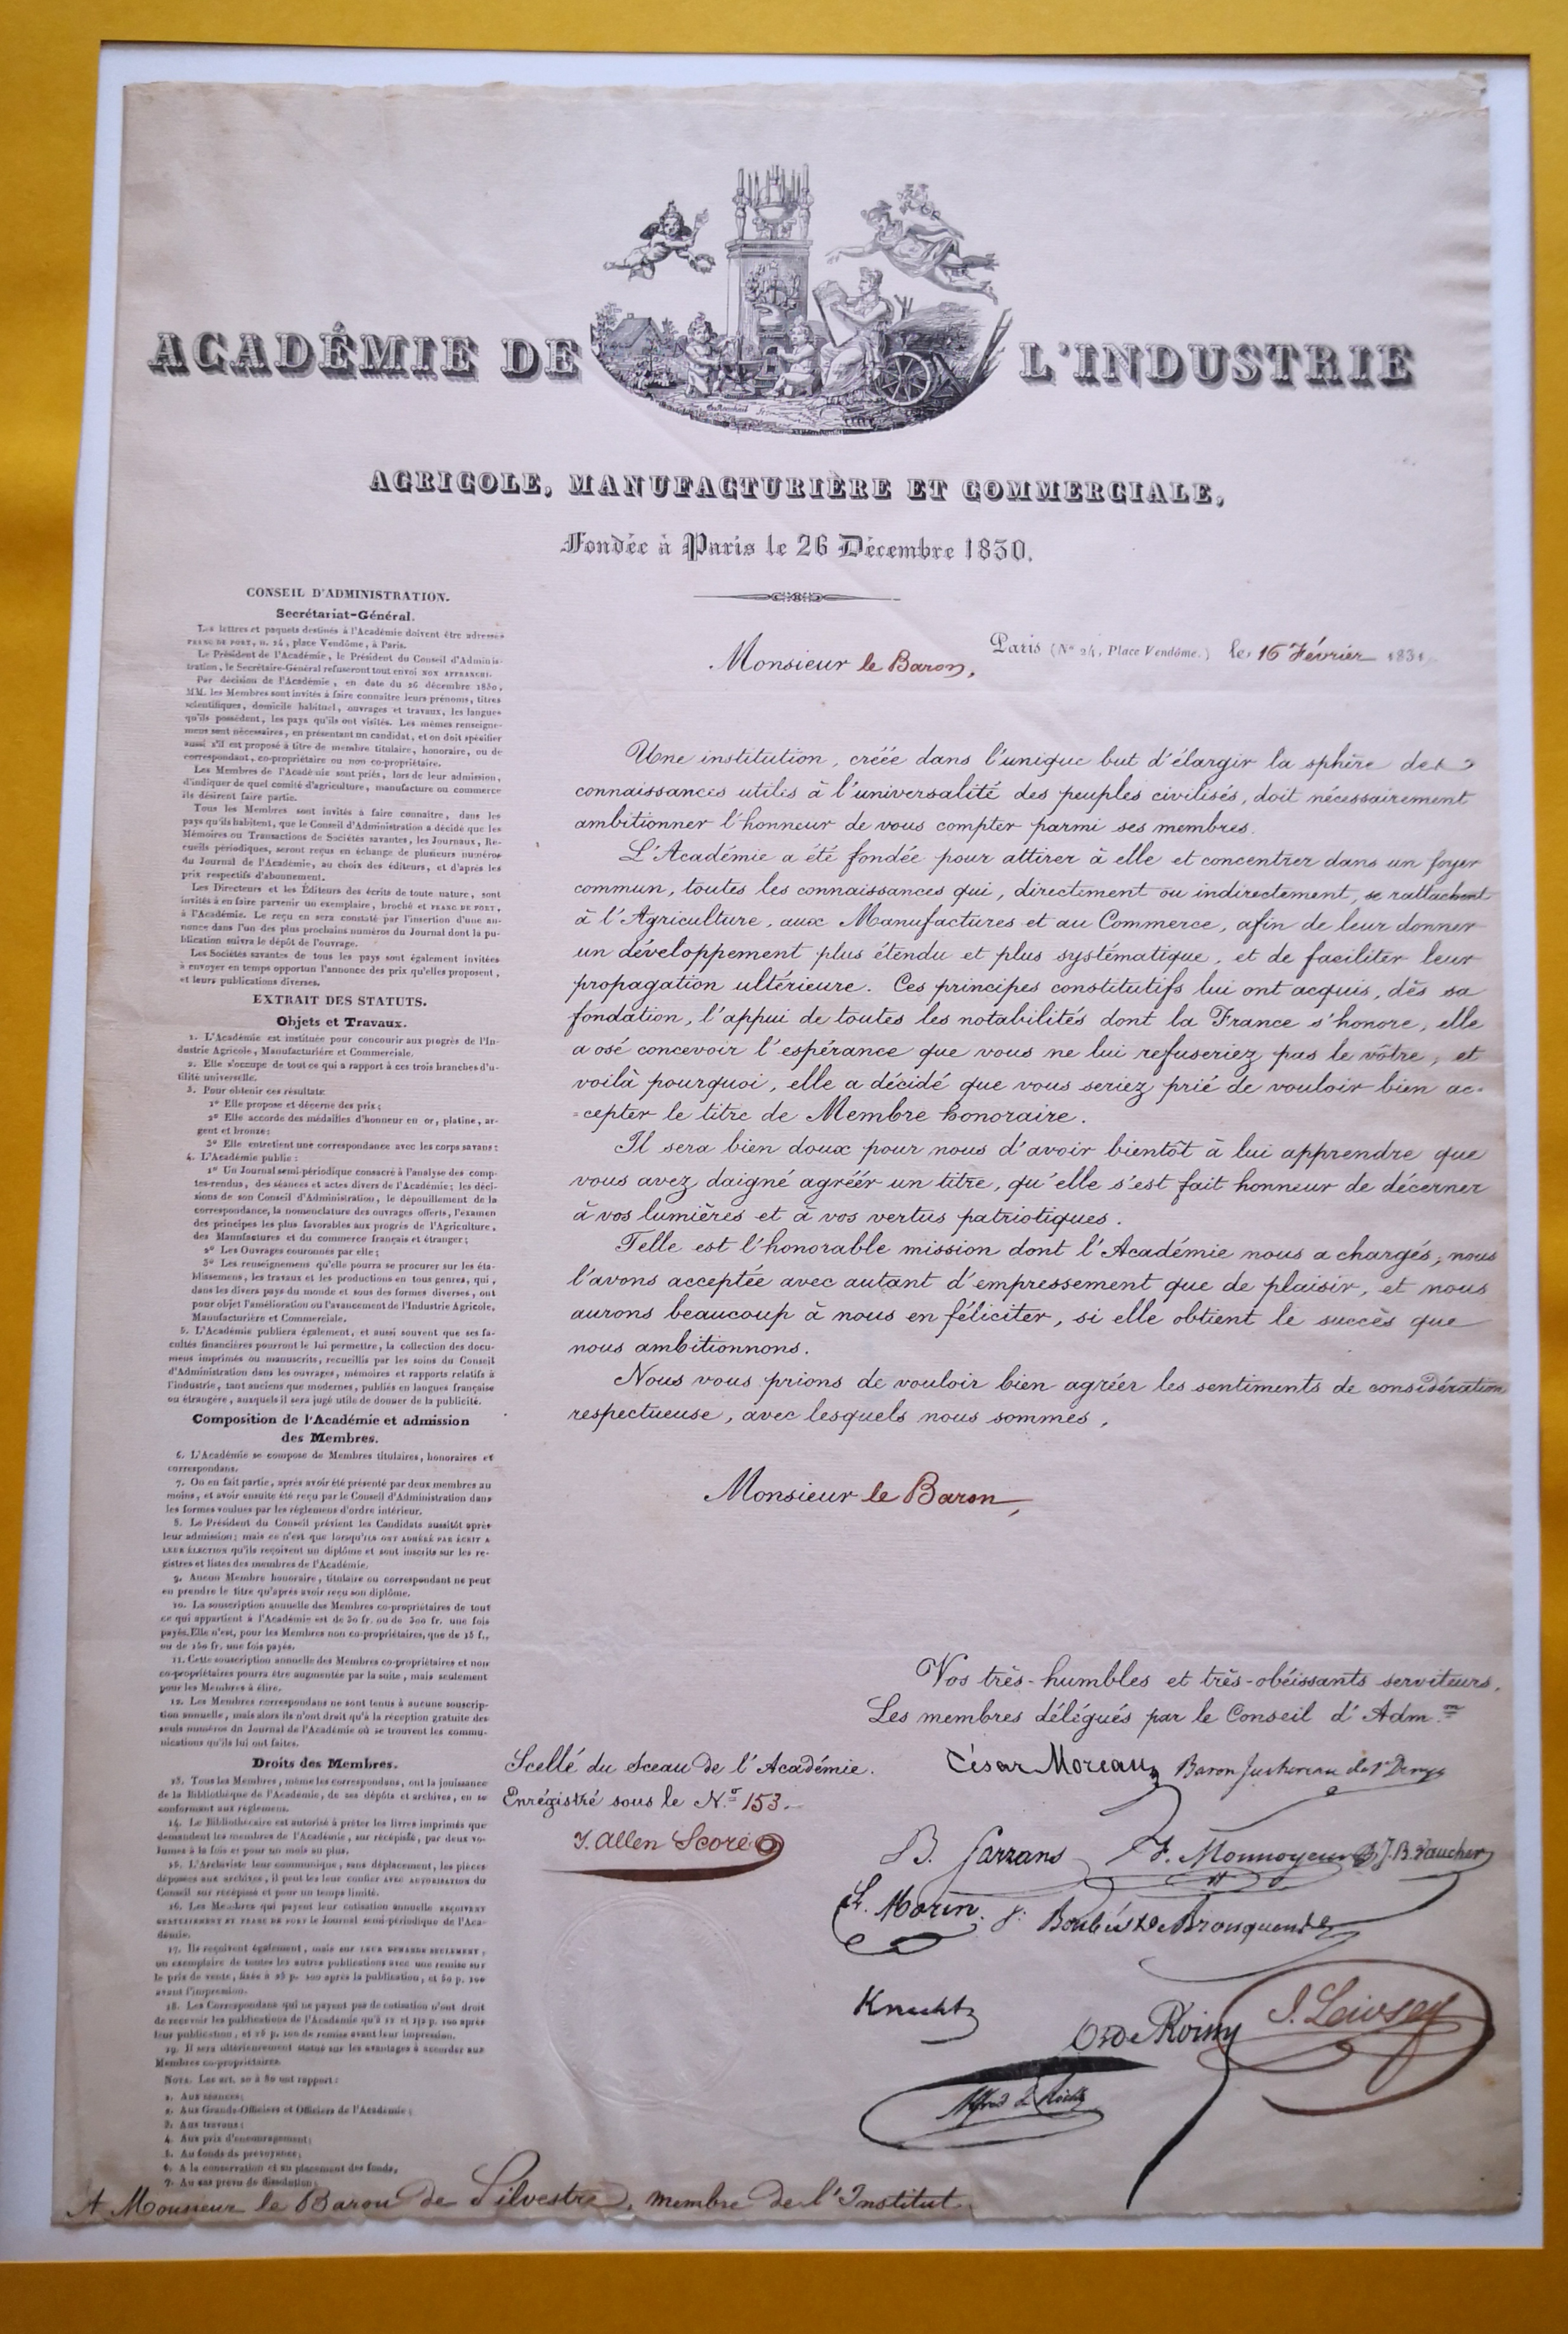 ACADÉMIE DE L'INDUSTRIE
AGRICOLE, MANUFACTURIÈRE ET COMMERCIALE,
Fondée à Paris le 26 Décembre 1830.
CONSEIL D'ADMINISTRATION.
Secrétariat-Général.
Les lettres et paquets destinés à l'Académie doivent être adressés
FRANC DE PORT, n. 24, place Vendôme, à Paris.
Le Président de l'Académie, le Président du Conseil d'Adminis-
tration, le Secrétaire-Général refuseront tout envoi NON AFFRANCHI.
Par décision de l'Académie, en date du 26 décembre 1830,
MM. les Membres sont invités à faire connaître leurs prénoms, titres
scientifiques, domicile habituel, ouvrages et travaux, les langues
qu'ils possèdent, les pays qu'ils ont visités. Les mêmes renseigne-
mens sont nécessaires, en présentant un candidat, et on doit spécifier
aussi s'il est proposé à titre de membre titulaire, honoraire, ou de
correspondant, co-propriétaire ou non co-propriétaire.
Les Membres de l'Académie sont priés, lors de leur admission,
d'indiquer de quel comité d'agriculture, manufacture ou commerce
ils désirent faire partie.
Tous les Membres sont invités à faire connaître, dans les
pays qu'ils habitent, que le Conseil d'Administration a décidé que les
Mémoires ou Transactions de Sociétés savantes, les Journaux, Re-
cueils périodiques, seront reçus en échange de plusieurs numéros
du Journal de l'Académie, au choix des éditeurs, et d'après les
prix respectifs d'abonnement.
Les Directeurs et les Éditeurs des écrits de toute nature, sont
invités à en faire parvenir un exemplaire, broché et FRANC DE PORT,
à l'Académie. Le reçu en sera constaté par l'insertion d'une an-
nonce dans l'un des plus prochains numéros du Journal dont la pu-
blication suivra le dépôt de l'ouvrage.
Les Sociétés savantes de tous les pays sont également invitées
à envoyer en temps opportun l'annonce des prix qu'elles proposent,
et leurs publications diverses.
EXTRAIT DES STATUTS.
Objets et Travaux.
1. L'Académie est instituée pour concourir aux progrès de l'In-
dustrie Agricole, Manufacturière et Commerciale.
2. Elle s'occupe de tout ce qui a rapport à ces trois branches d'u-
tilité universelle.
3. Pour obtenir ces résultats:
1° Elle propose et décerne des prix;
2° Elle accorde des médailles d'honneur en or, platine, ar-
gent et bronze;
3° Elle entretient une correspondance avec les corps savans:
4. L'Académie publie:
1° Un Journal semi-périodique consacré à l'analyse des comp-
tes-rendus, des séances et actes divers de l'Académie; les déci-
sions de son Conseil d'Administration, le dépouillement de la
correspondance, la nomenclature des ouvrages offerts, l'examen
des principes les plus favorables aux progrès de l'Agriculture,
des Manufactures et du commerce français et étranger;
2° Les Ouvrages couronnés par elle;
3° Les renseignemens qu'elle pourra se procurer sur les éta-
blissemens, les travaux et les productions en tous genres, qui,
dans les divers pays du monde et sous des formes diverses, ont
pour objet l'amélioration ou l'avancement de l'Industrie Agricole,
Manufacturière et Commerciale.
5. L'Académie publiera également, et aussi souvent que ses fa-
cultés financières pourront le lui permettre, la collection des docu-
mens imprimés ou manuscrits, recueillis par les soins du Conseil
d'Administration dans les ouvrages, mémoires et rapports relatifs à
l'industrie, tant anciens que modernes, publiés en langues française
ou étrangère, auxquels il sera jugé utile de donner de la publicité.
Composition de l'Académie et admission
des Membres.
6. L'Académie se compose de Membres titulaires, honoraires et
correspondans.
7. On en fait partie, après avoir été présenté par deux membres au
moins, et avoir ensuite été reçu par le Conseil d'Administration dans
les formes voulues par les réglemens d'ordre intérieur.
8. Le Président du Conseil prévient les Candidats aussitôt après
leur admission; mais ce n'est que lorsqu'ILS ONT ADHÉRÉ PAR ÉCRIT A
LEUR ÉLECTION qu'ils reçoivent un diplôme et sont inscrits sur les re-
gistres et listes des membres de l'Académie.
9. Aucun Membre honoraire, titulaire ou correspondant ne peut
en prendre le titre qu'après avoir reçu son diplôme.
10. La souscription annuelle des Membres co-propriétaires de tout
ce qui appartient à l'Académie est de 30 fr. ou de 300 fr. une fois
payés. Elle n'est, pour les Membres non co-propriétaires, que de 15 f.,
ou de 150 fr. une fois payés.
11. Cette souscription annuelle des Membres co-propriétaires et non
co-propriétaires pourra être augmentée par la suite, mais seulement
pour les Membres à élire.
12. Les Membres correspondans ne sont tenus à aucune souscrip-
tion annuelle, mais alors ils n'ont droit qu'à la réception gratuite des
seuls numéros du Journal de l'Académie où se trouvent les commu-
nications qu'ils lui ont faites.
Droits des Membres.
13. Tous les Membres, même les correspondans, ont la jouissance
de la Bibliothèque de l'Académie, de ses dépôts et archives, en se
conformant aux réglemens.
14. Le Bibliothécaire est autorisé à prêter les livres imprimés que
demandent les membres de l'Académie, sur récépissé, par deux vo-
lumes à la fois et pour un mois au plus.
15. L'Archiviste leur communique, sans déplacement, les pièces
déposées aux archives, il peut les leur confier AVEC AUTORISATION du
Conseil sur récépissé et pour un temps limité.
16. Les Membres qui payent leur cotisation annuelle REÇOIVENT
GRATUITEMENT ET FRANC DE PORT le Journal semi-périodique de l'Aca-
démie.
17. Ils reçoivent également, mais sur LEUR DEMANDE SEULEMENT,
un exemplaire de toutes les autres publications avec une remise sur
le prix de vente, fixée à 25 p. 100 après la publication, et 50 p. 100
avant l'impression.
18. Les Correspondans qui ne payent pas de cotisation n'ont droit
de recevoir les publications de l'Académie qu'à 12 et 1/2 p. 100 après
leur publication, et 25 p. 100 de remise avant leur impression.
19. Il sera ultérieurement statué sur les avantages à accorder aux
Membres co-propriétaires.
NOTA. Les art. 20 à 80 ont rapport:
1. Aux séances;
2. Aux Grands-Officiers et Officiers de l'Académie;
3. Aux travaux;
4. Aux prix d'encouragement;
5. Au fonds de prévoyance;
6. A la conservation et au placement des fonds,
7. Au cas prévu de dissolution;
Paris (N° 24, Place Vendôme.) le 16 Février 1831.
Monsieur le Baron,
Une institution, créée dans l'unique but d'élargir la sphère des
connaissances utiles à l'universalité des peuples civilisés, doit nécessairement
ambitionner l'honneur de vous compter parmi ses membres.
L'Académie a été fondée pour attirer à elle et concentrer dans un foyer
commun, toutes les connaissances qui, directement ou indirectement, se rattachent
à l'Agriculture, aux Manufactures et au Commerce, afin de leur donner
un développement plus étendu et plus systématique, et de faciliter leur
propagation ultérieure. Ces principes constitutifs lui ont acquis, dès sa
fondation, l'appui de toutes les notabilités dont la France s'honore, elle
a osé concevoir l'espérance que vous ne lui refuseriez pas le vôtre, et
voilà pourquoi, elle a décidé que vous seriez prié de vouloir bien ac-
=cepter le titre de Membre honoraire.
Il sera bien doux pour nous d'avoir bientôt à lui apprendre que
vous avez daigné agréér un titre, qu'elle s'est fait honneur de décerner
à vos lumières et à vos vertus patriotiques.
Telle est l'honorable mission dont l'Académie nous a chargés, nous
l'avons acceptée avec autant d'empressement que de plaisir, et nous
aurons beaucoup à nous en féliciter, si elle obtient le succès que
nous ambitionnons.
Nous vous prions de vouloir bien agréer les sentiments de considération
respectueuse, avec lesquels nous sommes,
Monsieur le Baron,
Vos très-humbles et très-obéissants serviteurs.
Les membres délégués par le Conseil d'Adm.on
Scellé du sceau de l'Académie.
Enrégistré sous le N.° 153.
J. Allen Score
César Moreau
B. Sarrans F. Monnoyeur J. B. Vaucher
Morin
Knecht
A Monsieur le Baron de Silvestre, membre de l'Institut.